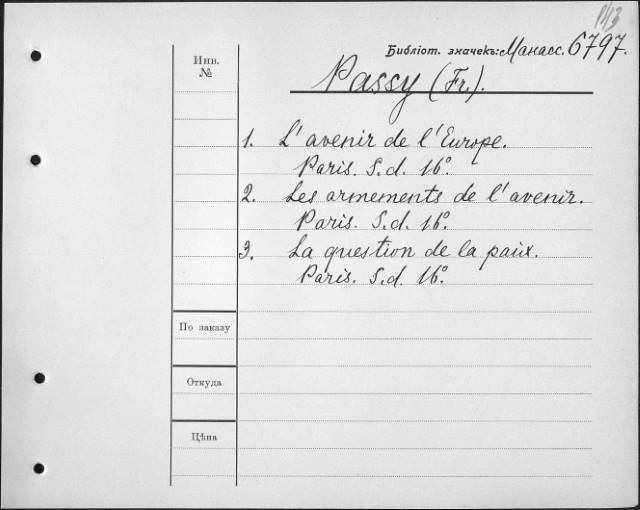 Библіот. значекъ: Манасс. 6797.
Инв.
№
Passy (Fr.).
1. L'avenir de l'Europe.
Paris. S.d. 16°.
2. Les armements de l'avenir.
Paris. S.d. 16°.
3. La question de la paix.
Paris. S.d. 16°.
По заказу
Откуда
Цѣна